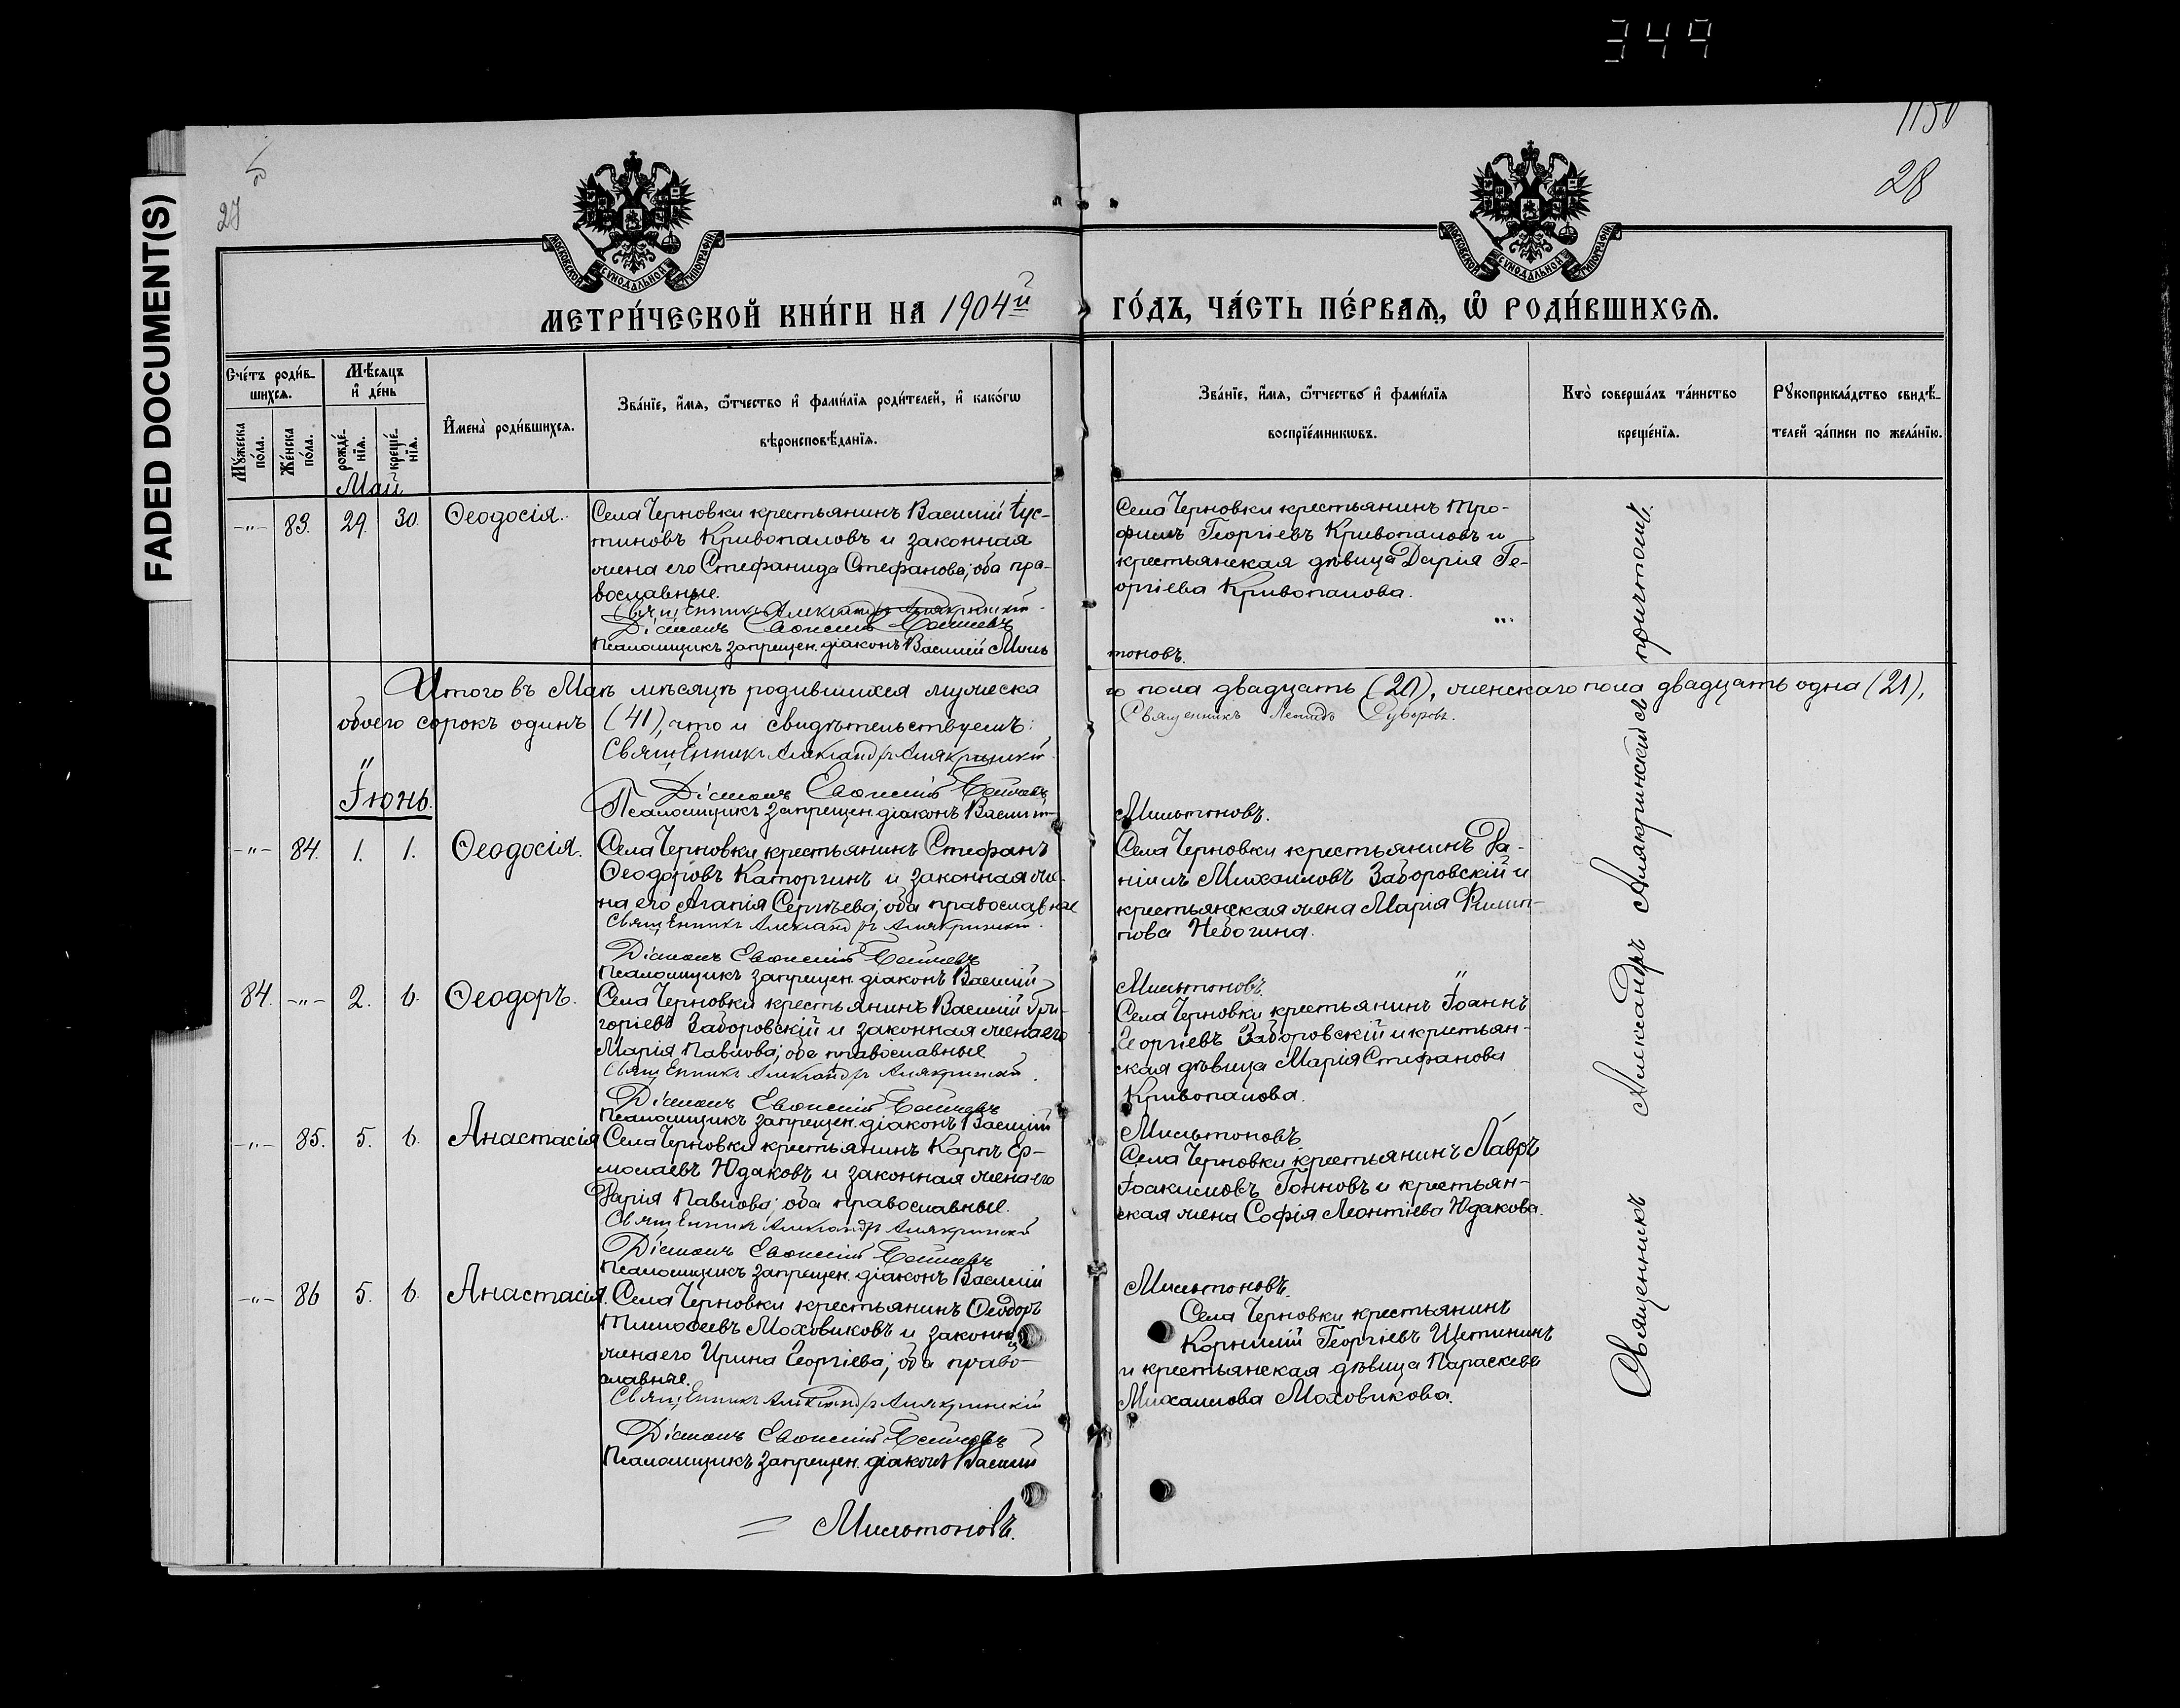 349
1150
27
28
FADED DOCUMENT(S)
МОСКОВСКОЙ СѴНОДАЛЬНОЙ ТИПОГРАФІИ
МОСКОВСКОЙ СѴНОДАЛЬНОЙ ТИПОГРАФІИ
МЕТРИ́ЧЕСКОЙ КНИ́ГИ НА 1904й ГО́ДЪ, ЧА́СТЬ ПЕ́РВАѦ, Ѡ҆ РОДИ́ВШИХСѦ.
Сче́тъ роди́в-
шихсѧ.
Мꙋ́жеска по́ла.
Же́нска по́ла.
Мѣ́сяцъ
и҆ де́нь
рожде́-
нїѧ.
креще́-
нїѧ.
И҆мена̀ роди́вшихсѧ.
Зва́нїе, и҆́мѧ, ѻ҆́тчество и҆ фами́лїѧ роди́телей, и҆ како́гѡ
вѣроисповѣ́данїѧ.
Зва́нїе, и҆́мѧ, ѻ҆́тчество и҆ фами́лїѧ
воспрїе́мникѡвъ.
Кто̀ соверша́лъ та́инство
креще́нїѧ.
Рꙋкоприкла́дство свидѣ́-
телей за́писи по жела́нїю.
Май
-"- 83. 29. 30. Ѳеодосія.
Села Черновки крестьянинъ Василій Іус-
тиновъ Кривопаловъ и законная
жена его Стефанида Стефанова; оба пра-
вославные.
Священникъ Александръ Алякринскій
Діаконъ
Псаломщикъ запрещен. діаконъ Василій Миль
тоновъ.
Села Черновки крестьянинъ Тро-
фимъ Георгіевъ Кривопаловъ и
крестьянская дѣвица Дарія Ге-
оргіева Кривопалова.
Итого въ Маѣ мѣсяцѣ родившихся мужеска
го пола двадцать (20), женскаго пола двадцать одна (21),
обоего сорокъ одинъ (41), что и свидѣтельствуемъ:
Священникъ
Священникъ Александръ Алякринскій
Діаконъ
Псаломщикъ запрещен. діаконъ Василій
Мильтоновъ.
Іюнь.
-"- 84. 1. 1. Ѳеодосія.
Села Черновки крестьянинъ Стефанъ
Ѳеодоровъ Каторгинъ и законная же-
на его Агапія Сергѣева; оба православные
Священникъ Александръ Алякринскій.
Діаконъ
Псаломщикъ запрещен. діаконъ Василій
Мильтоновъ.
Села Черновки крестьянинъ Да-
ніилъ Михаиловъ Заборовскій и
крестьянская жена Марія Филип-
пова Небогина.
84. -"- 2. 6. Ѳеодоръ.
Села Черновки крестьянинъ Василій Гри-
горіевъ Заборовскій и законная жена его
Марія Павлова; оба православные
Священникъ Александръ Алякринскій.
Діаконъ
Псаломщикъ запрещен. діаконъ Василій
Мильтоновъ.
Села Черновки крестьянинъ Іоаннъ
Георгіевъ Заборовскій и крестьян-
ская дѣвица Марія Стефанова
Кривопалова.
-"- 85. 5. 6. Анастасія
Села Черновки крестьянинъ Карпъ Ер-
молаевъ Юдаковъ и законная жена его
Дарія Павлова; оба православные.
Священникъ Александръ Алякринскій
Діаконъ
Псаломщикъ запрещен. діаконъ Василій
Мильтоновъ.
Села Черновки крестьянинъ Лавръ
Іоакимовъ и крестьян-
ская жена Софія Леонтіева Юдакова.
-"- 86 5. 6. Анастасія.
Села Черновки крестьянинъ Ѳеодоръ
Тимоѳеевъ Моховиковъ и законная
жена его Ирина Георгіева; оба право-
славные.
Священникъ Александръ Алякринскій
Діаконъ
Псаломщикъ запрещен. діаконъ Василій
Мильтоновъ.
Села Черновки крестьянинъ
Корнилій Георгіевъ Щетининъ
и крестьянская дѣвица Параскева
Михаилова Моховикова.
Священникъ Александръ Алякринскій съ причтомъ.